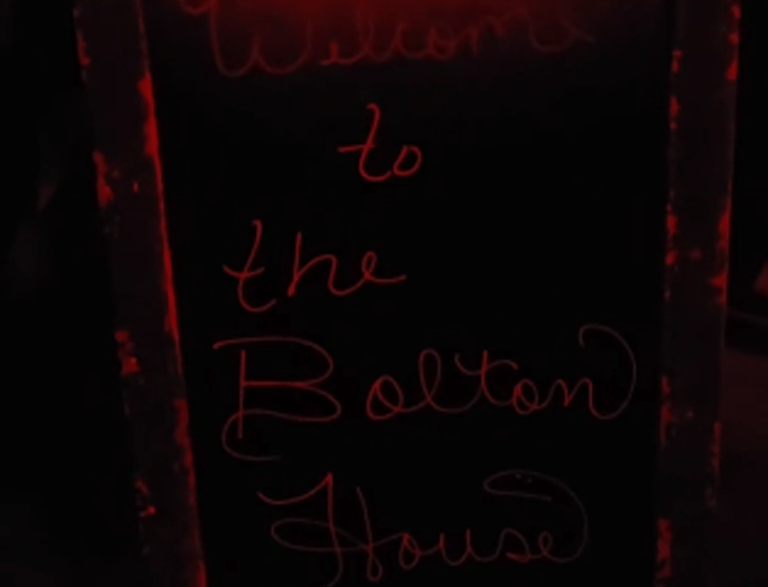 Welcome
to
the
Bolton
House